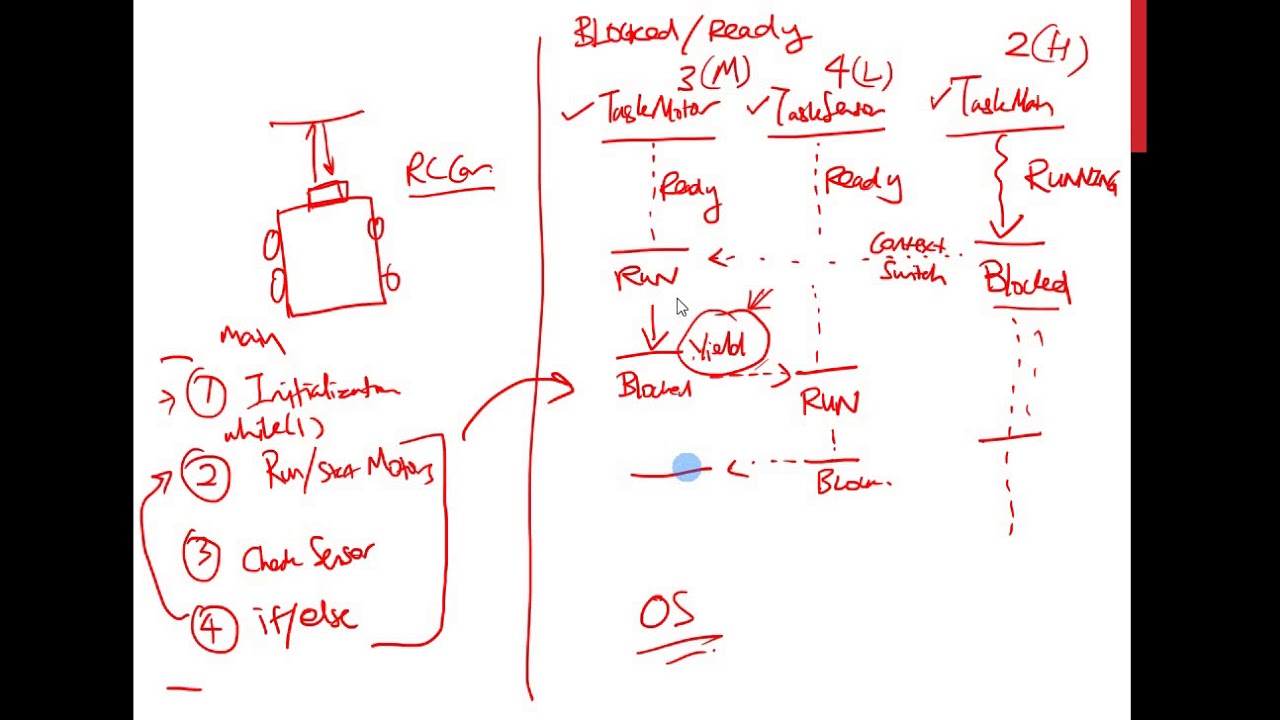 RC Car.
main
1 Initialization
while(1)
2 Run/Start Motors
3 Check Sensor
4 if/else
Blocked/Ready
3(M) 4(L) 2(H)
✓ TaskMotor ✓ TaskSensor ✓ TaskMain
Ready Ready RUNNING
Context
Switch
RUN Blocked
Yield
Blocked RUN
Block.
OS